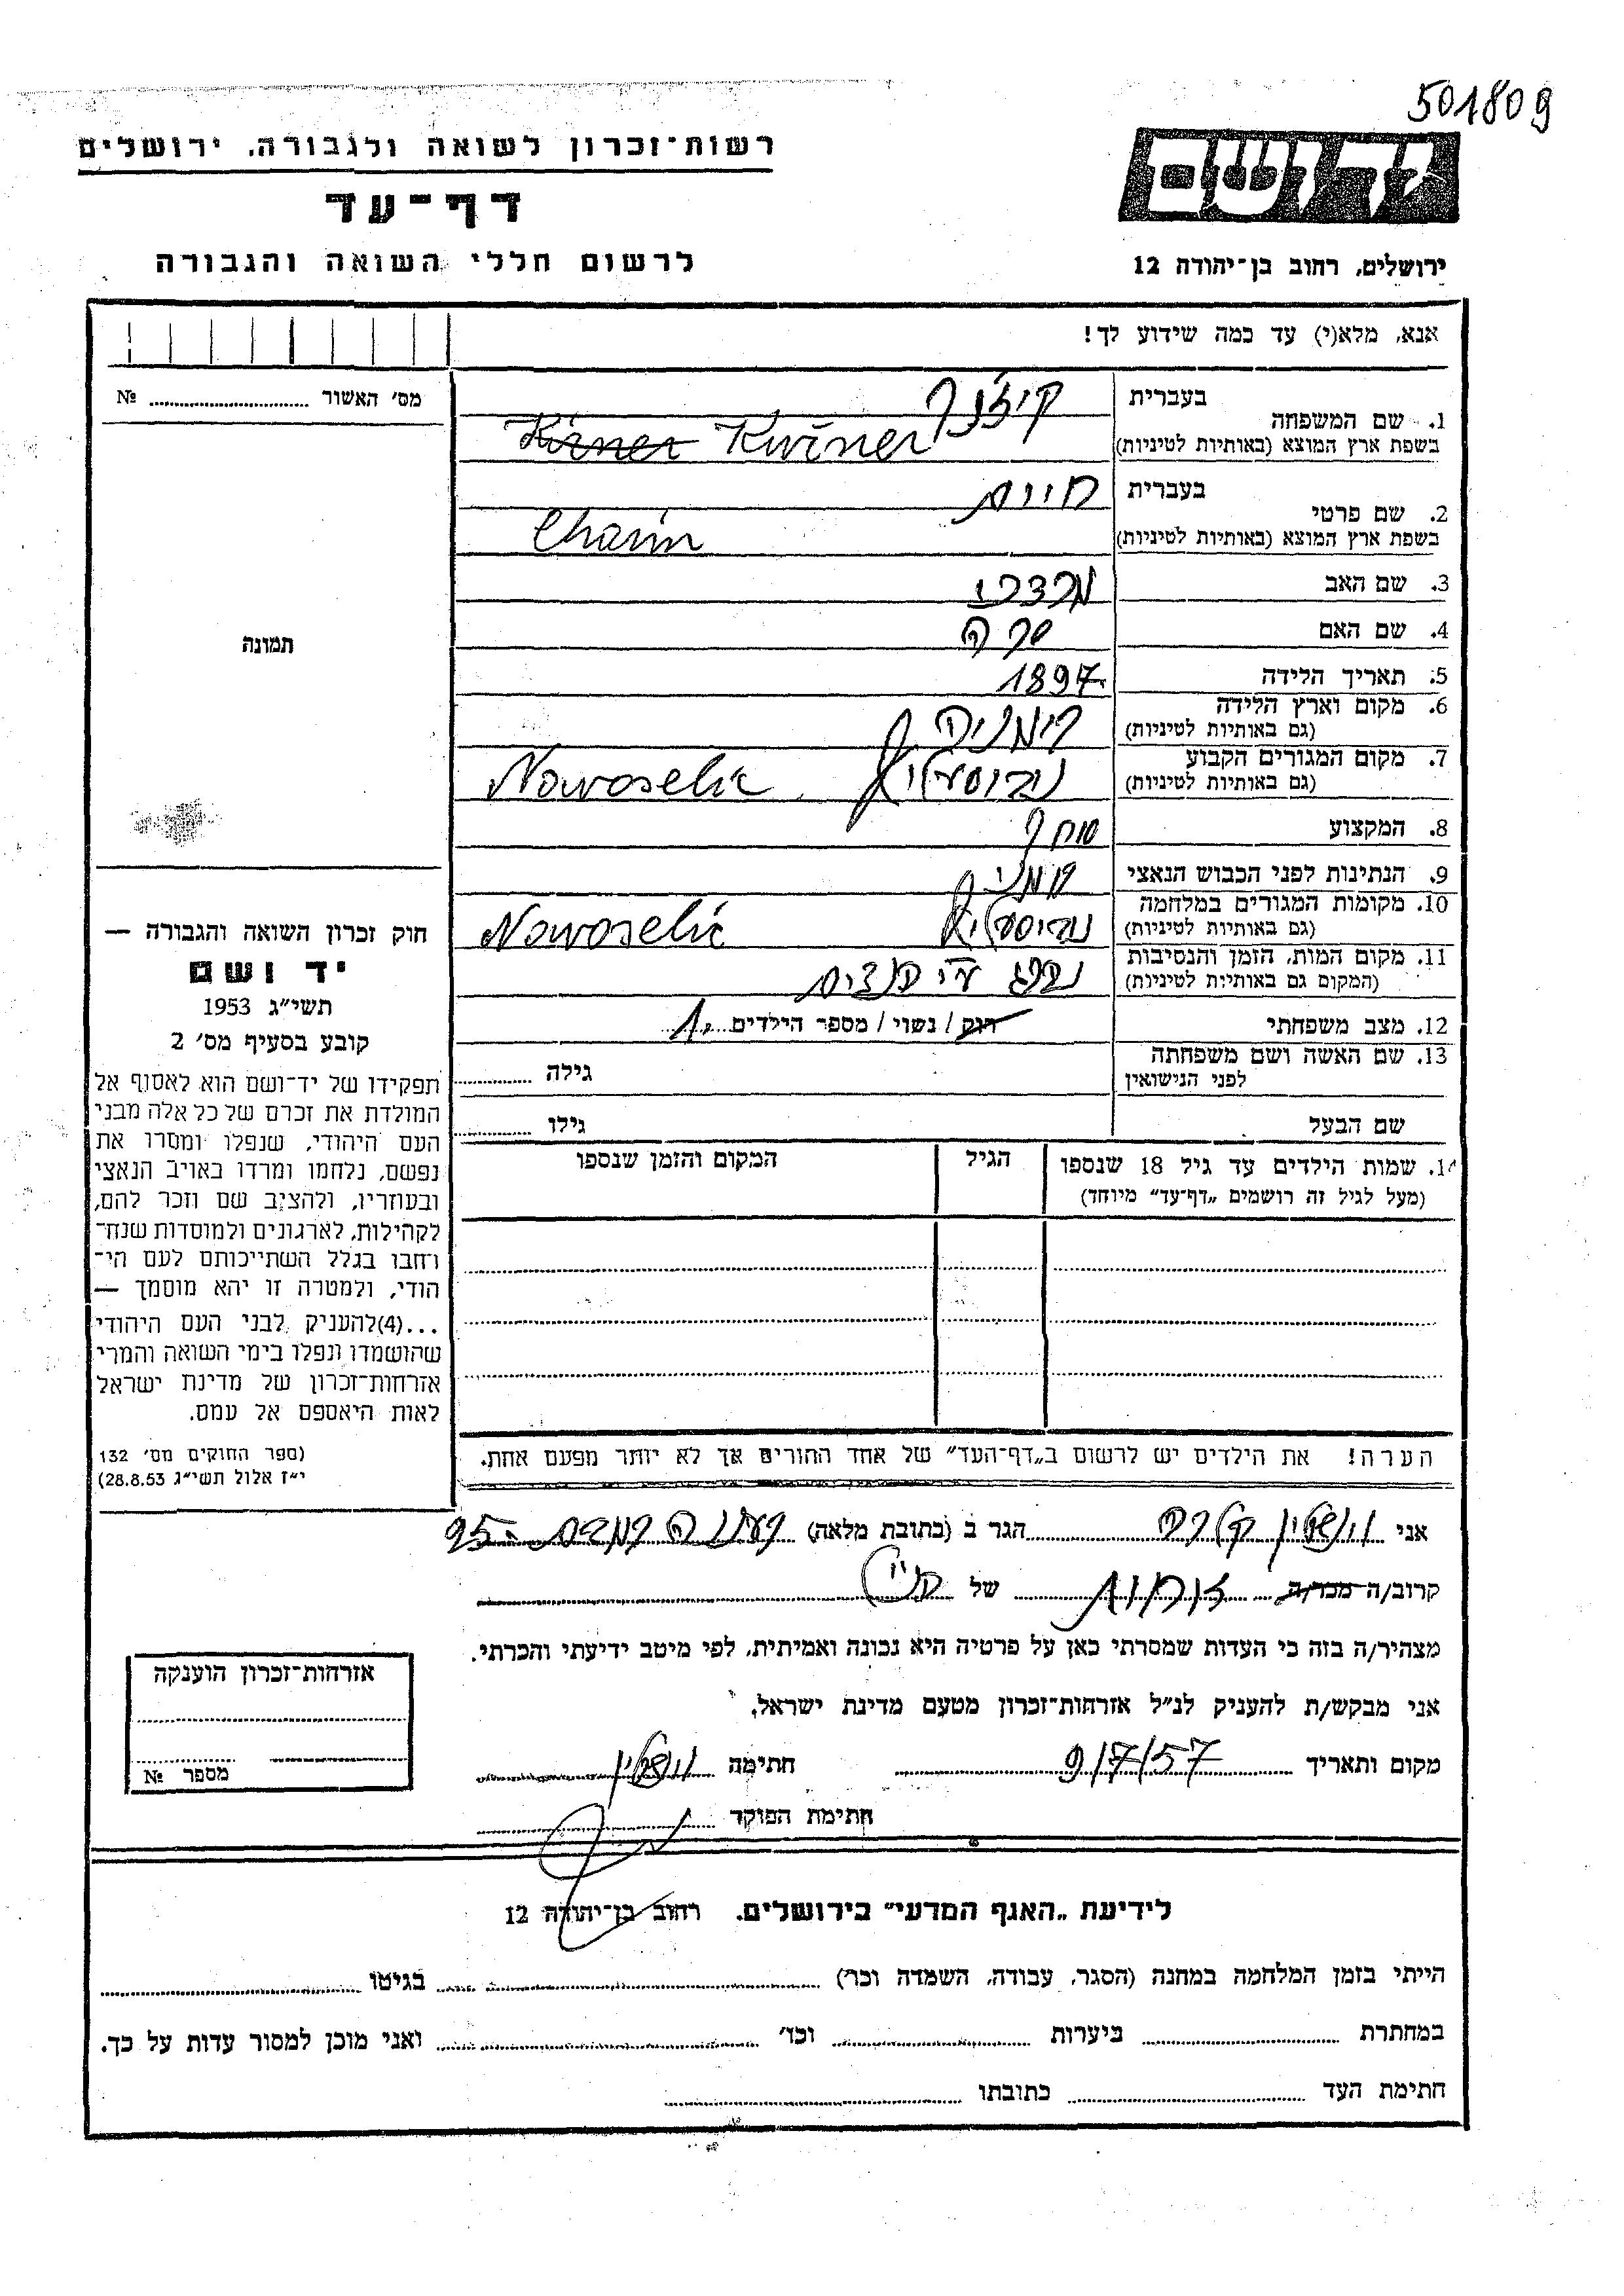 501809
יד ושם
ירושלים, רחוב בן־יהודה 12
רשות־זכרון לשואה ולגבורה, ירושלים
דף־עד
לרשום חללי השואה והגבורה
אנא, מלא(י) עד כמה שידוע לך!
מס׳ האשור № 
1. שם המשפחה בעברית
בשפת ארץ המוצא (באותיות לטיניות) Kirner
2. שם פרטי בעברית חיים
בשפת ארץ המוצא (באותיות לטיניות) Chaim
3. שם האב מרדכי
4. שם האם שרה
5. תאריך הלידה 1897
6. מקום וארץ הלידה רומניה
(גם באותיות לטיניות)
7. מקום המגורים הקבוע Nowoselic
(גם באותיות לטיניות)
8. המקצוע סוחר
9. הנתינות לפני הכבוש הנאצי
10. מקומות המגורים במלחמה Nowoselic
(גם באותיות לטיניות)
11. מקום המות, הזמן והנסיבות נהרג ע״י הנצים
(המקום גם באותיות לטיניות)
12. מצב משפחתי רוק / נשוי / מספר הילדים 1
13. שם האשה ושם משפחתה
לפני הנישואין גילה
שם הבעל גילו
שמות הילדים עד גיל 18 שנספו הגיל המקום והזמן שנספו
(מעל לגיל זה רושמים „דף־עד״ מיוחד)
הערה! את הילדים יש לרשום ב„דף־העד״ של אחד ההורים אך לא יותר מפעם אחת.
תמונה
חוק זכרון השואה והגבורה —
יד ושם
תשי״ג 1953
קובע בסעיף מס׳ 2
תפקידו של יד־ושם הוא לאסוף אל
המולדת את זכרם של כל אלה מבני
העם היהודי, שנפלו ומסרו את
נפשם, נלחמו ומרדו באויב הנאצי
ובעוזריו, ולהציב שם וזכר להם,
לקהילות, לארגונים ולמוסדות שנח־
רחבו בגלל השתייכותם לעם הי־
הודי, ולמטרה זו יהא מוסמך —
...(4)להעניק לבני העם היהודי
שהושמדו ונפלו בימי השואה והמרי
אזרחות־זכרון של מדינת ישראל
לאות היאספם אל עמם.
(ספר החוקים מס׳ 132
י״ז אלול תשי״ג 28.8.53)
אני הגר ב (כתובת מלאה) 95
קרוב/ה מכר/ה של
מצהיר/ה בזה כי העדות שמסרתי כאן על פרטיה היא נכונה ואמיתית, לפי מיטב ידיעתי והכרתי.
אני מבקש/ת להעניק לנ״ל אזרחות־זכרון מטעם מדינת ישראל.
מקום ותאריך 9/7/57 חתימה
חתימת הפוקד
אזרחות־זכרון הוענקה
מספר №
לידיעת „האגף המדעי״ בירושלים. רחוב בן־יהודה 12
הייתי בזמן המלחמה במחנה (הסגר, עבודה, השמדה וכר׳) בגיטו
במחתרת ביערות וכד׳ ואני מוכן למסור עדות על כך.
חתימת העד כתובתו